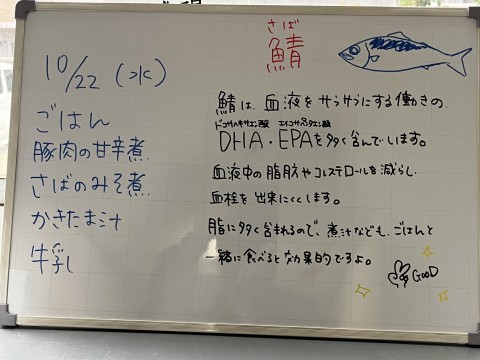 10/22(水)
ごはん
豚肉の甘辛煮
さばのみそ煮
かきたま汁
牛乳
さば
鯖
鯖は、血液をサラサラにする働きの
ドコサヘキサエン酸 エイコサペンタエン酸
DHA・EPAを多く含んでいます。
血液中の脂肪やコレステロールを減らし
血栓を出来にくくします。
脂に多く含まれるので、煮汁なども、ごはんと
一緒に食べると効果的ですよ。
GOOD